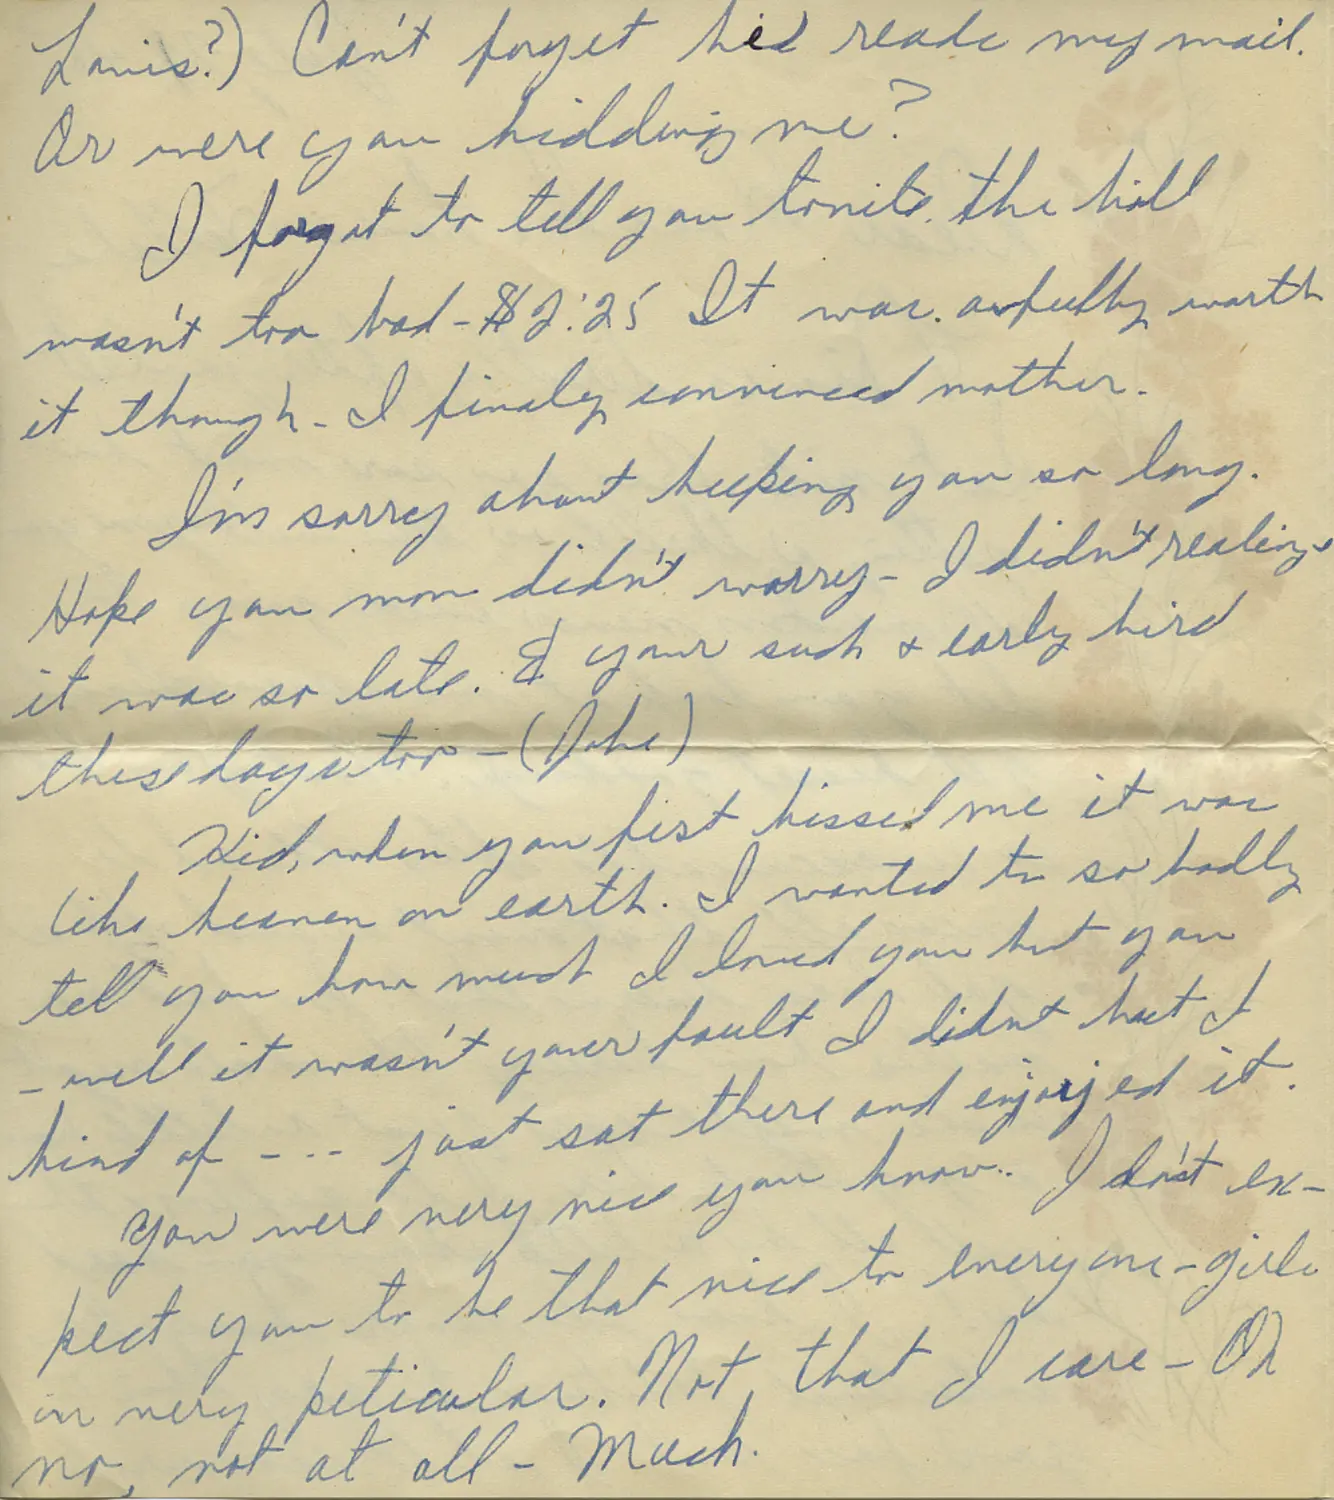 Louis?) Can't forget he'd reade my mail.
Or were you kidding me?
I forgot to tell you tonite. the bill
wasn't too bad - $2.25 It was. awfully worth
it though - I finaly convinced mother.
I'm sorry about keeping you so long.
Hope you mom didn't worry - I didn't realinze
it was so late. & your such a early bird
these days too - (Joke)
Kid, when you first kissed me it was
like heaven on earth. I wanted to so badly
tell you how much I loved you but you
- well it wasn't your fault I didnt but I
kind of - - - just sat there and enjoyed it.
You were very nice you know.. I don't ex-
pect you to be that nice to everyone - girls
in very peticular. Not, that I care - Oh
no, not at all - Much.